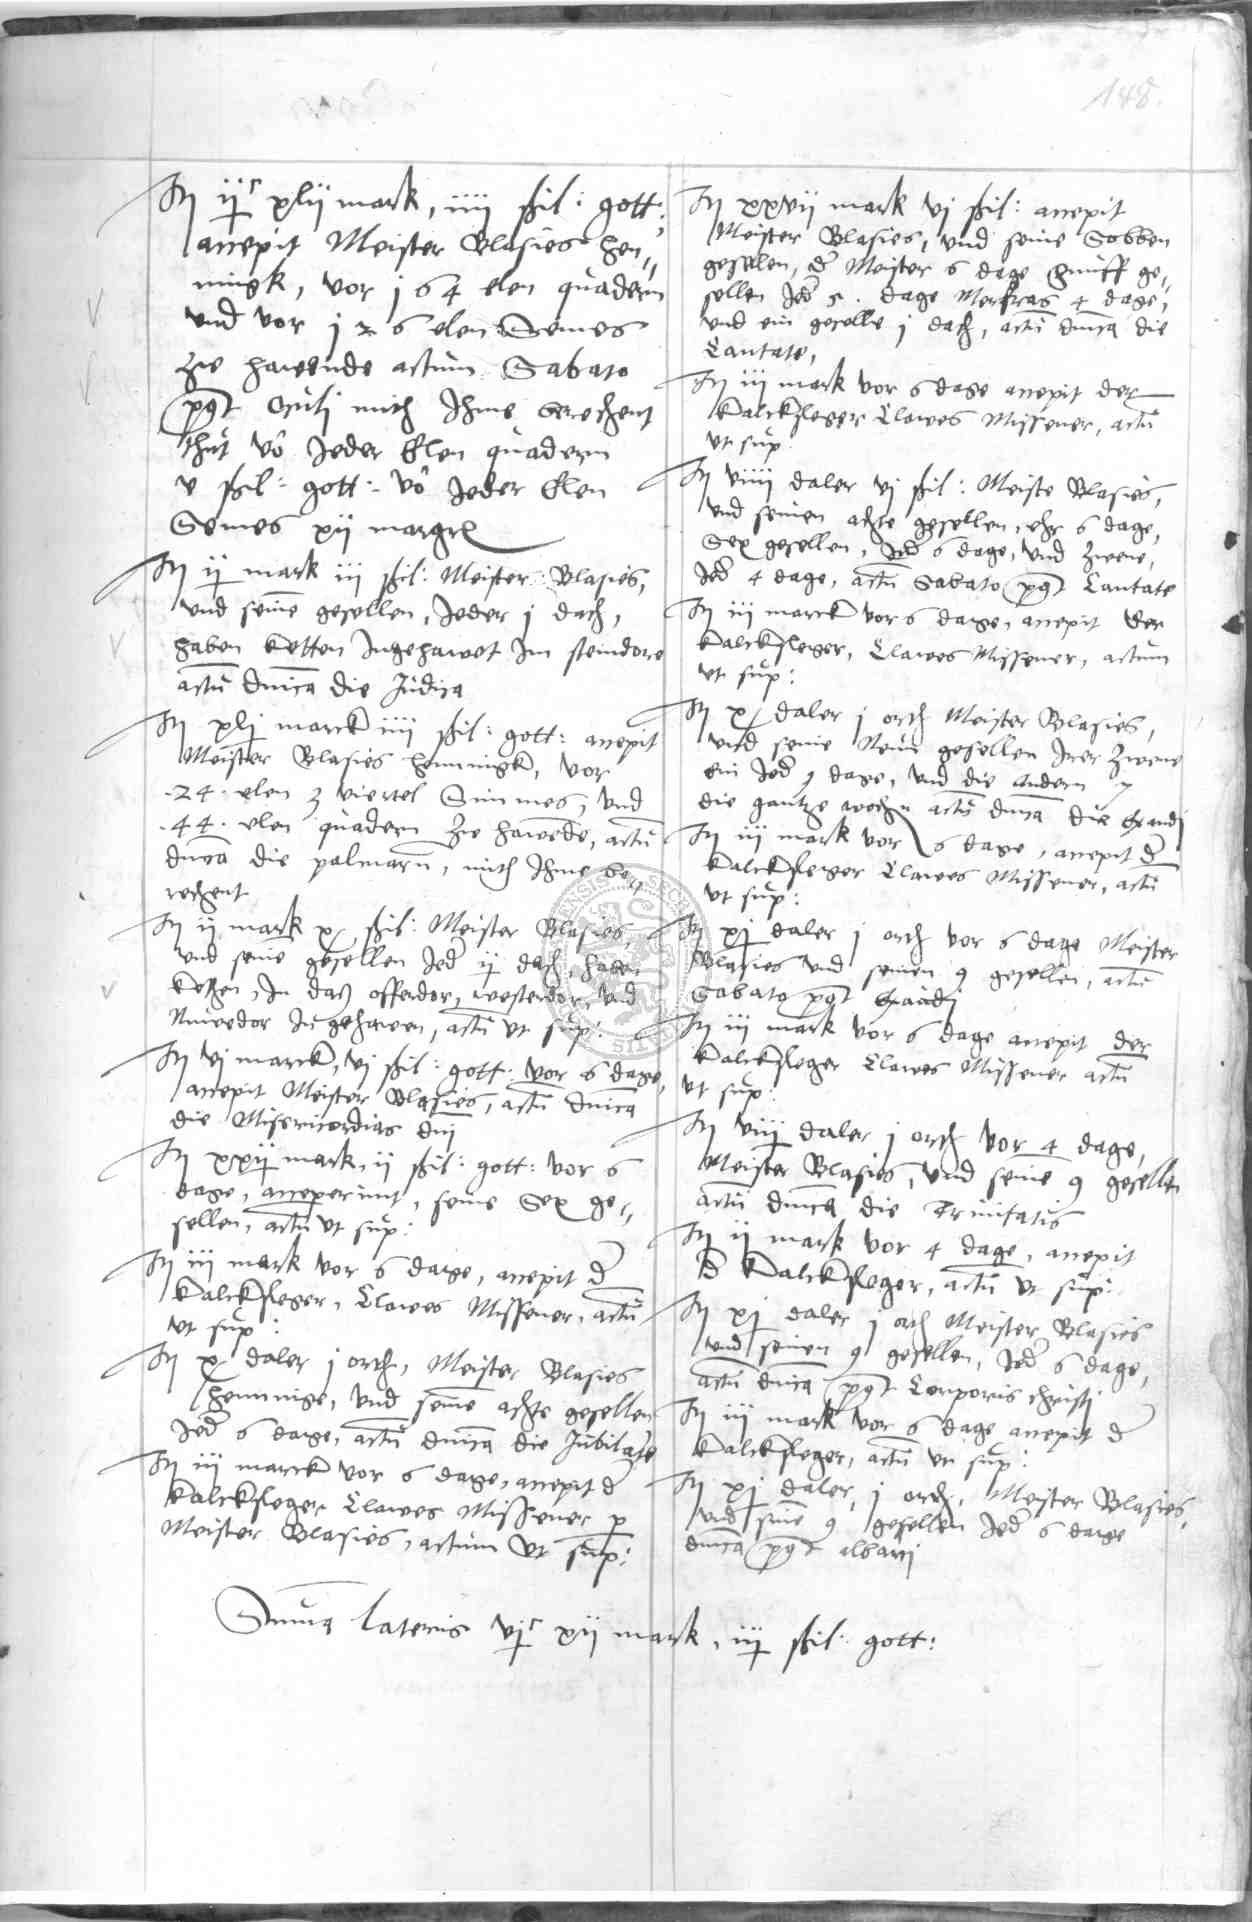 148.
It ijc xlij mark, iiij schil: gott:
accepit Meister Blasies Hen„
ningk, vor j 6 4 elen quadern
vnd vor j 2 6 elen Semes
zw hawende actum Sabato
post Oculi mith Ihme berechent
thut vo Jeder Elen quadern
v schil: gott: vo Jeder Elen
Semes xij margr
It ij mark iij schil: Meister Blasies,
vnd seine gesellen, Jeder j dach,
haben ketten Ingehawet Im steindore
actu dnica die Judica
It xlj marck iiij schil: gott: accepit
Meister Blasies Henningk, vor
·24· elen 3 viertel Simmes, vnd
·44· elen quadern zw hawede, actu
dnica die palmaru, mith Ihme be„
rechent
It ij mark x schil: Meister Blasies,
vnd seine gesellen Jed ij dach, haben
ketten, In das osterdor, westerdor, vnd
Nuwedor In gehawen, actu vt sup:
It vj marck, vj schil: gott: vor 6 dage,
accepit Meister Blasies, actu dnica
die Misericordias dni
It xxij mark, ij schil: gott: vor 6
dage, acceperunt, seine Sex ge„
sellen, actu vt sup:
It iij mark vor 6 dage, accepit d
kalckfleger, Clawes Missener, actu
vt sup:
It x daler j orth, Meister Blasies
Henninge, vnd seine achte gesellen
Jed 6 dage, actu dnica die Jubilate
It iij marck vor 6 dage, accepit d
kalckfleger Clawes Missener p
Meister Blasies, actum vt sup:
It xxvij mark vj schil: accepit
Meister Blasies, vnd seine Sobben
gesellen, d Meister 6 dage ge„
sellen Jed 5. dage 4 dage,
vnd ein geselle j dach, actu dnica die
Cantate,
It iij mark vor 6 dage accepit der
kalckfleger Clawes Missener, actu
vt sup
It viiij daler vj schil: Meiste Blasies,
vnd seinen achte gesellen, ehr 6 dage,
Sex gesellen, Jed 6 dage, vnd zwene,
Jed 4 dage, actu Sabato post Cantate
It iij marck vor 6 dage, accepit der
kalckfleger, Clawes Missener, actum
vt sup:
It x daler j orth Meister Blasies,
vnd seine Neun gesellen Irer zwene
ein Jed 9 dage, vnd die andern 7
die gantze wochn actu dnica die Exaudi
It iij mark vor 6 dage, accepit d
kalckfleger Clawes Missener, actu
vt sup:
It xj daler j orth vor 6 dage Meister
Blasies vnd seinen 9 gesellen, actu
Sabato post Exaudi
It iij mark vor 6 dage accepit der
kalckfleger Clawes Missener actu
vt sup:
It viij daler j orth vor 4 dage,
Meister Blasies, vnd seine 9 gesellen
actu dnica die Trinitatis
It ij mark vor 4 dage, accepit
d kalckfleger, actu vt sup:
It xj daler j orth Meister Blasies
vnd seinen 9 gesellen, Jed 6 dage,
actu dnica post Corporis christi
It iij mark vor 6 dage accepit d
kalckfleger, actu vt sup:
It xj daler, j orth, Meister Blasies,
vnd seine 9 gesellen Jed 6 dage
dnica post albani
Suma lateris vjc xij mark, iij schil: gott: